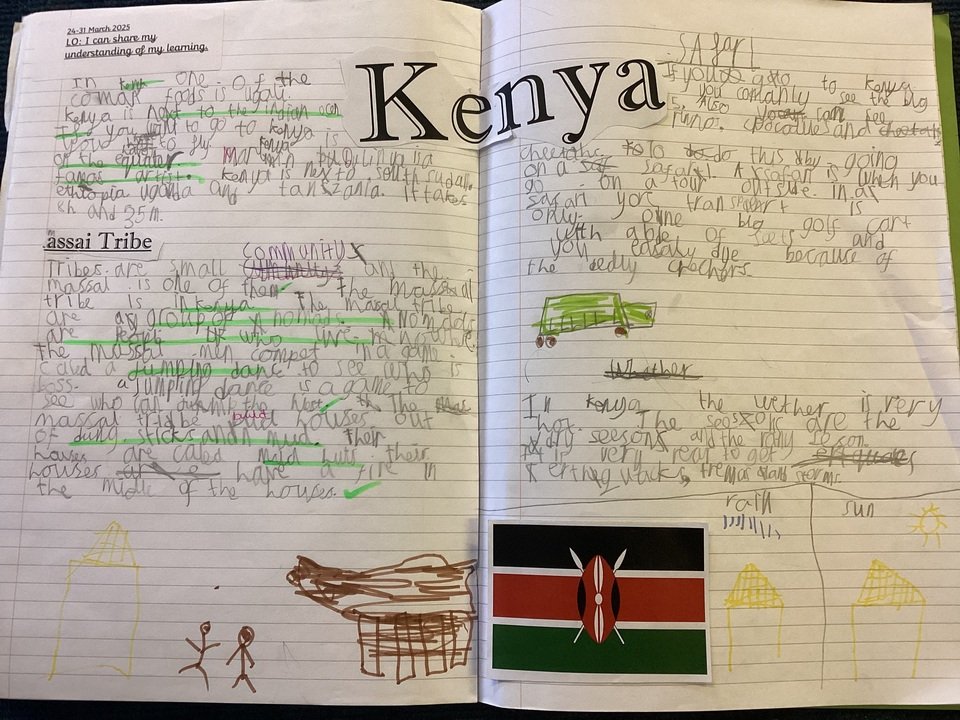 24-31 March 2025
LO: I can share my
understanding of my learning.
Kenya
In Kenya one of the
coman foods is ugali.
Kenya is next to the indian ocen
If you want to go to Kenya
to fly Kenya is
on the equator
famas artist. Kenya is next to south sudan.
ethiopia uganda and tanszania. It takes
8h and 35m.
massai Tribe
Tribes are small community and the
massai is one of them The massai
tribe is in kenya The massai tribe
are a group of nomads. A nomads
are people who live nowhere.
the massai men compet in a game
caled a jumping danc to see who is
boss. a jumping dance is a game to
see who can jump the hiest The
massai tribe buld houses out
of dung sticks and mud. Their
houses are caled mud huts their
houses have a fire in
the midle of the houses.
Safari
If you go to Kenya
you containly to see the big
5. Also you can see
rhino. crocodlie and cheetahs
cheetahs to do this by going
on a safari. A safari is when you
go on a tour outside. in a
safari your transport is
only one big golf cart
with able of seets and
you easaly dye because of
the dedly creachers.
Whether
In kenya the wether is very
hot. The seasons are the
dry seesons and the rainy seson
It is very rear to get
erthquacks, storms.
rain
sun